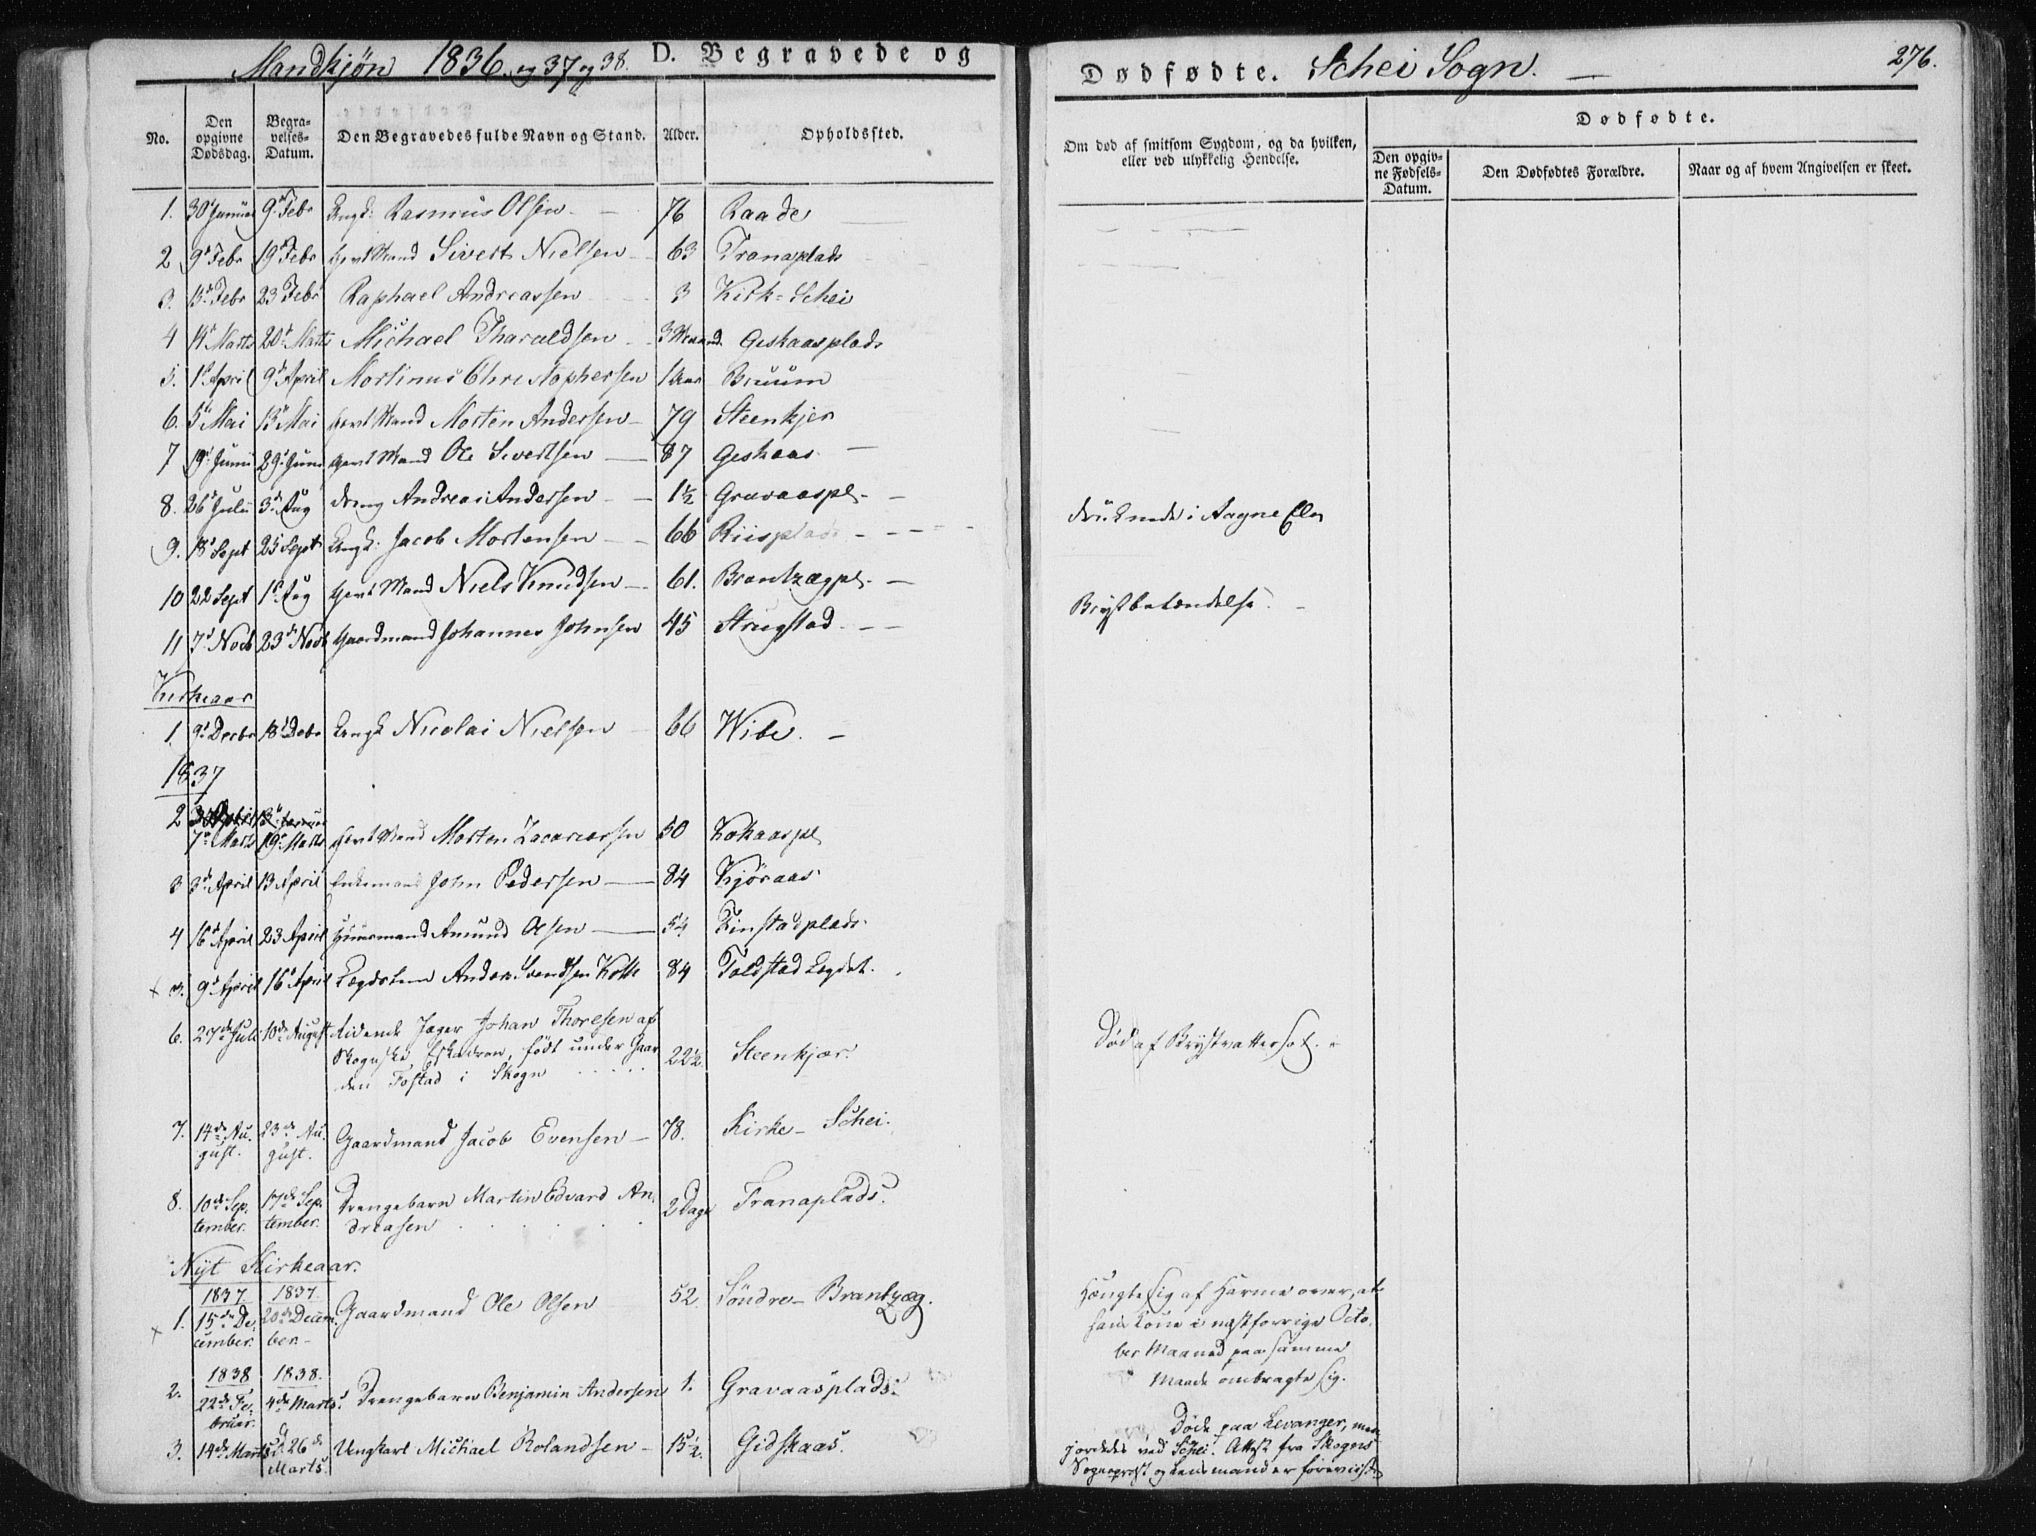 Mandkjøn 1836. og 37 og 38. D. Begravede og
Dødfødte. Schei Sogn. 276.
No. Den opgivne Dødsdag. Begravelses-Datum. Den Begravedes fulde Navn og Stand. Alder. Opholdssted.
Om død af smitsom Sygdom, og da hvilken, eller ved ulykkelig Hendelse. Dødfødte. Den opgivne Fødsels-Datum. Den Dødfødtes Forældre. Naar og af hvem Angivelsen er skeet.
1. 30 Januar 9de Febr Rasmus Olsen 76 Raade
2 9de Febr 19de Febr Mand Sivert Nielsen 63 Tranaplads
3. 13de Febr 23 Febr Raphael Andreassen 3 Kirk-Schei
4 14 Marts 20de Marts Michael Tharaldsen 3 Maaned Geskaasplads
5. 1ste April 9de April Mortinus Christophersen 1 Aar Bruum
6. 5te Mai 13de Mai Mand Morten Andersen 79 Steenkjer
7 19de Junii 29de Juni Mand Ole Sivertsen 87 Geskaas
8. 26de Julii 3de Aug Dreng Andreas Andersen 1½ Gravaaspl. druknede i Aagne Elv
9. 18de Sept 25 Sept Jacob Mortensen 66 Riisplads
10 22 Sept 1ste Aug Mand Niels Knudsen 61. Brantzægpl.
11 7de Novb 23de Novb Gaardmand Johannes Johnsen 45 Strugstad Brystbetændelse.
Kirkeaar
1. 9de Decbr 18de Decbr Nicolai Nielsen 66 Wibe.
1837
2 7de Marts 19de Marts Mand Morten Zacariassen 50 Kokaaspl
3 3de April 13 April Enkemand John Pedersen 84 Kjøraas
4 16de April 23 April Huusmand Amund Olsen 54 Finstadplads
5. 9de April 16de April Lægdslem Anders Svendsen 84 Tolsstad Lægdet.
6. 27de Juli 10de August Ridende Jæger Johan Thoresen af
Skognske Eskadron, født under Gaar
den Fostad i Skogn 22½. Steenkjær. Død af Brystvattersot.
7. 14de August. 23de August. Gaardmand Jacob Evensen 78. Kirke-Schei.
8. 10de September. 17de September. Drengebarn Martin Edvard An-
dreasen 2 Dage Tranaplads.
Nyt Kirkeaar.
1837. 1837.
1. 15de December. 20de December. Gaardmand Ole Olsen 52. Søndre-Brantzæg. Hængte sig af Harme over, at
hans Kone i næstforrige Octo-
ber Maaned paa samme
Maade ombragte sig.
1838 1838.
2. 22de Februar. 4de Marts. Drengebarn Benjamin Andersen 1. Gravaasplads.
3. 14de Marts d. 26de Marts. Ungkarl Michael Rolandsen 15½. Gidskaas. Døde paa Levanger, men
jordedes ved Schei. Attest fra Skogns
Sogneprest og Lensmand er foreviist.